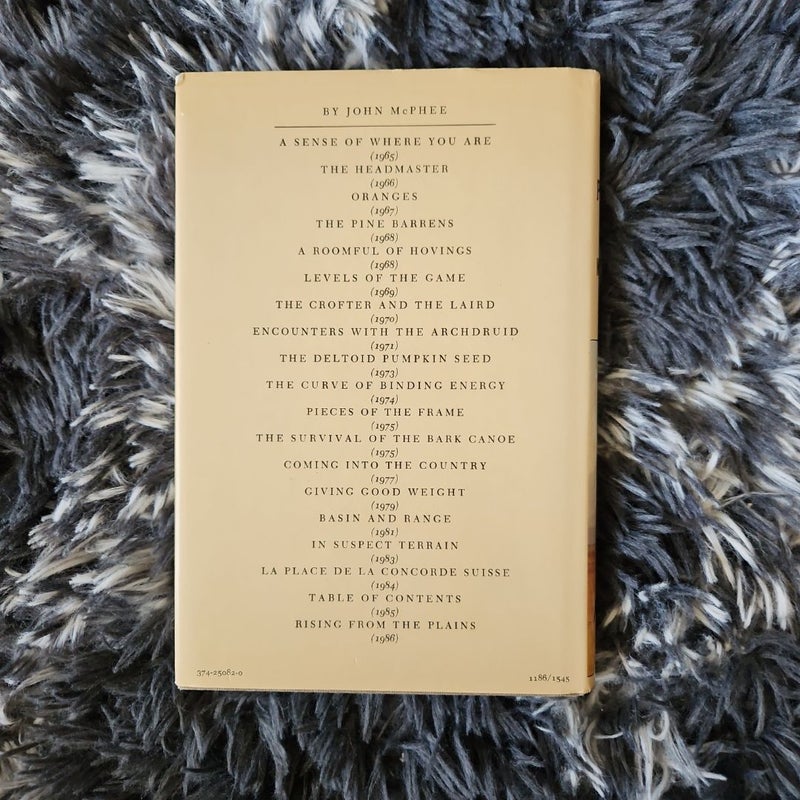 BY JOHN McPHEE
A SENSE OF WHERE YOU ARE
(1965)
THE HEADMASTER
(1966)
ORANGES
(1967)
THE PINE BARRENS
(1968)
A ROOMFUL OF HOVINGS
(1968)
LEVELS OF THE GAME
(1969)
THE CROFTER AND THE LAIRD
(1970)
ENCOUNTERS WITH THE ARCHDRUID
(1971)
THE DELTOID PUMPKIN SEED
(1973)
THE CURVE OF BINDING ENERGY
(1974)
PIECES OF THE FRAME
(1975)
THE SURVIVAL OF THE BARK CANOE
(1975)
COMING INTO THE COUNTRY
(1977)
GIVING GOOD WEIGHT
(1979)
BASIN AND RANGE
(1981)
IN SUSPECT TERRAIN
(1983)
LA PLACE DE LA CONCORDE SUISSE
(1984)
TABLE OF CONTENTS
(1985)
RISING FROM THE PLAINS
(1986)
374-25082-0
1186/1545